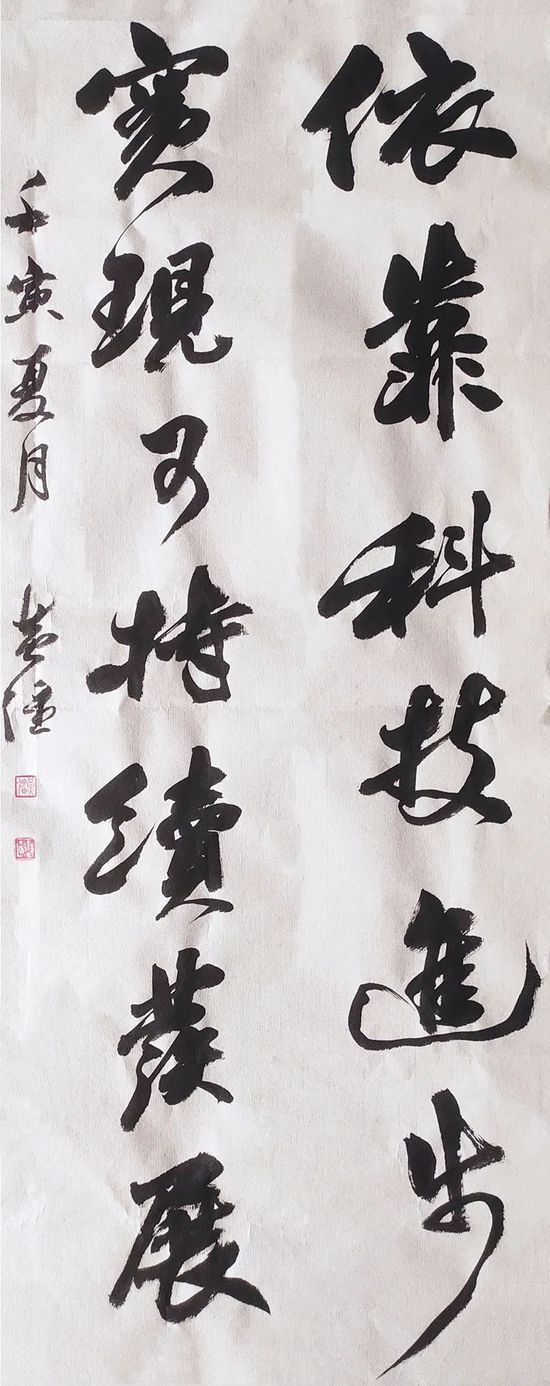 依靠科技進步
實現可持續發展
壬寅夏月